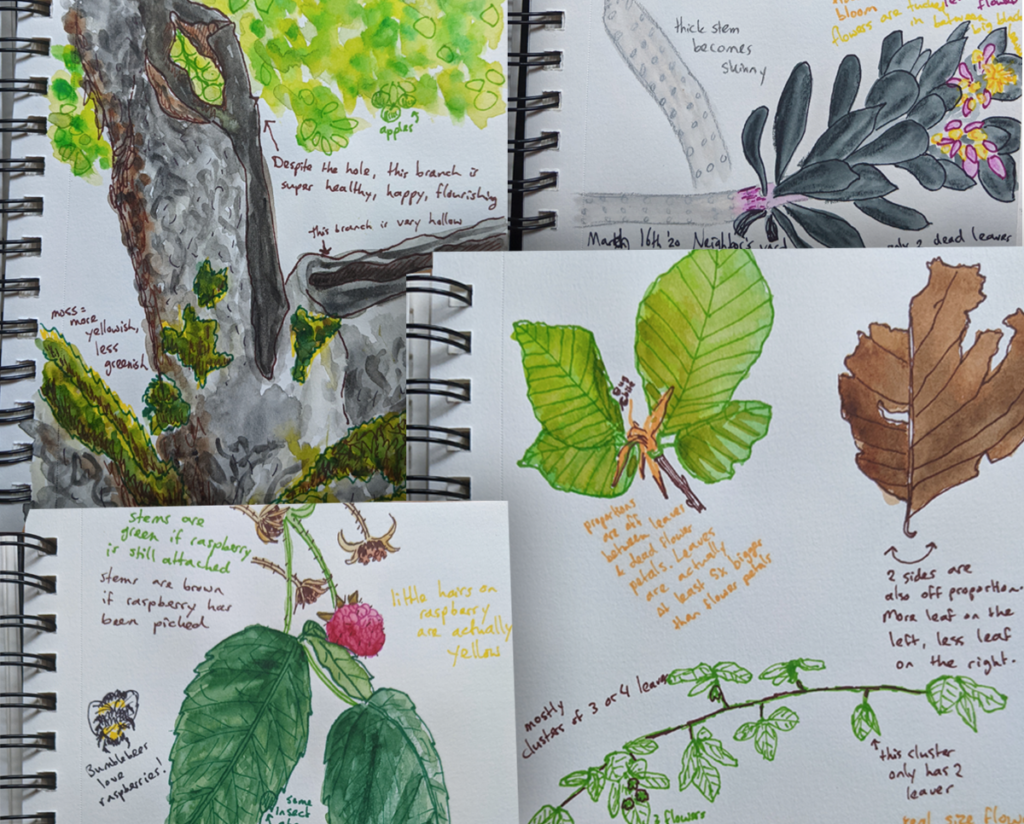 apples
Despite the hole, this branch is
super healthy, happy, flourishing
this branch is very hollow
moss =
more
yellowish,
less
greenish
thick stem
becomes
skinny
bloom
flowers are tucked
in between
big
March 16th '20 Neighbor's yard
only 2 dead leaves
proportions
are off
between leaves
& dead flower
petals. Leaves
are actually
at least 5x bigger
than flower petals
2 sides are
also off proportion.
More leaf on the
left, less leaf
on the right.
stems are
green if raspberry
is still attached
stems are brown
if raspberry has
been picked
little hairs on
raspberry
are actually
yellow
Bumblebees
love
raspberries!
some
insect
mostly
clusters of 3 or 4 leaves
this cluster
only has 2
leaves
flowers
real size flow